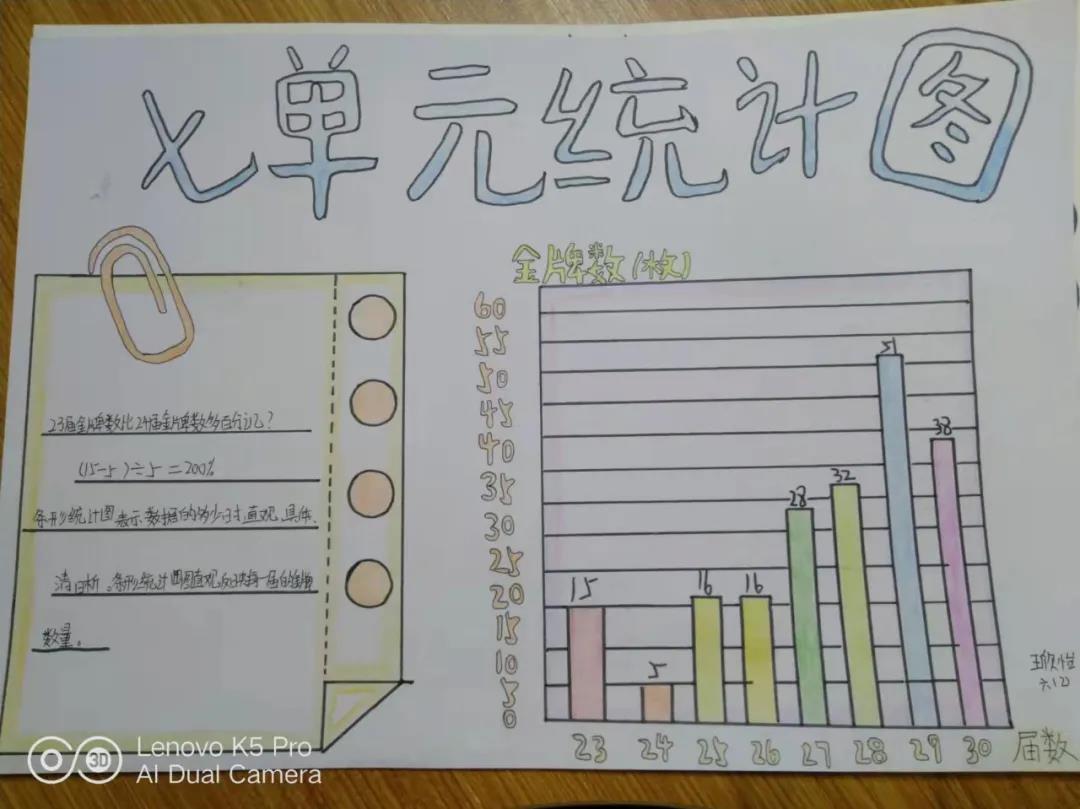 七单元统计图
23届金牌数比24届金牌数多百分之几?
(15-5)÷5=200%
条形统计图表示数据的多少时,直观、具体、
清晰。条形统计图直观反映每一届的金牌
数量。
金牌数(枚)
60
55
50
45
40
35
30
25
20
15
10
5
0
15
5
16
16
28
32
51
38
23 24 25 26 27 28 29 30 届数
六(2)
Lenovo K5 Pro
AI Dual Camera